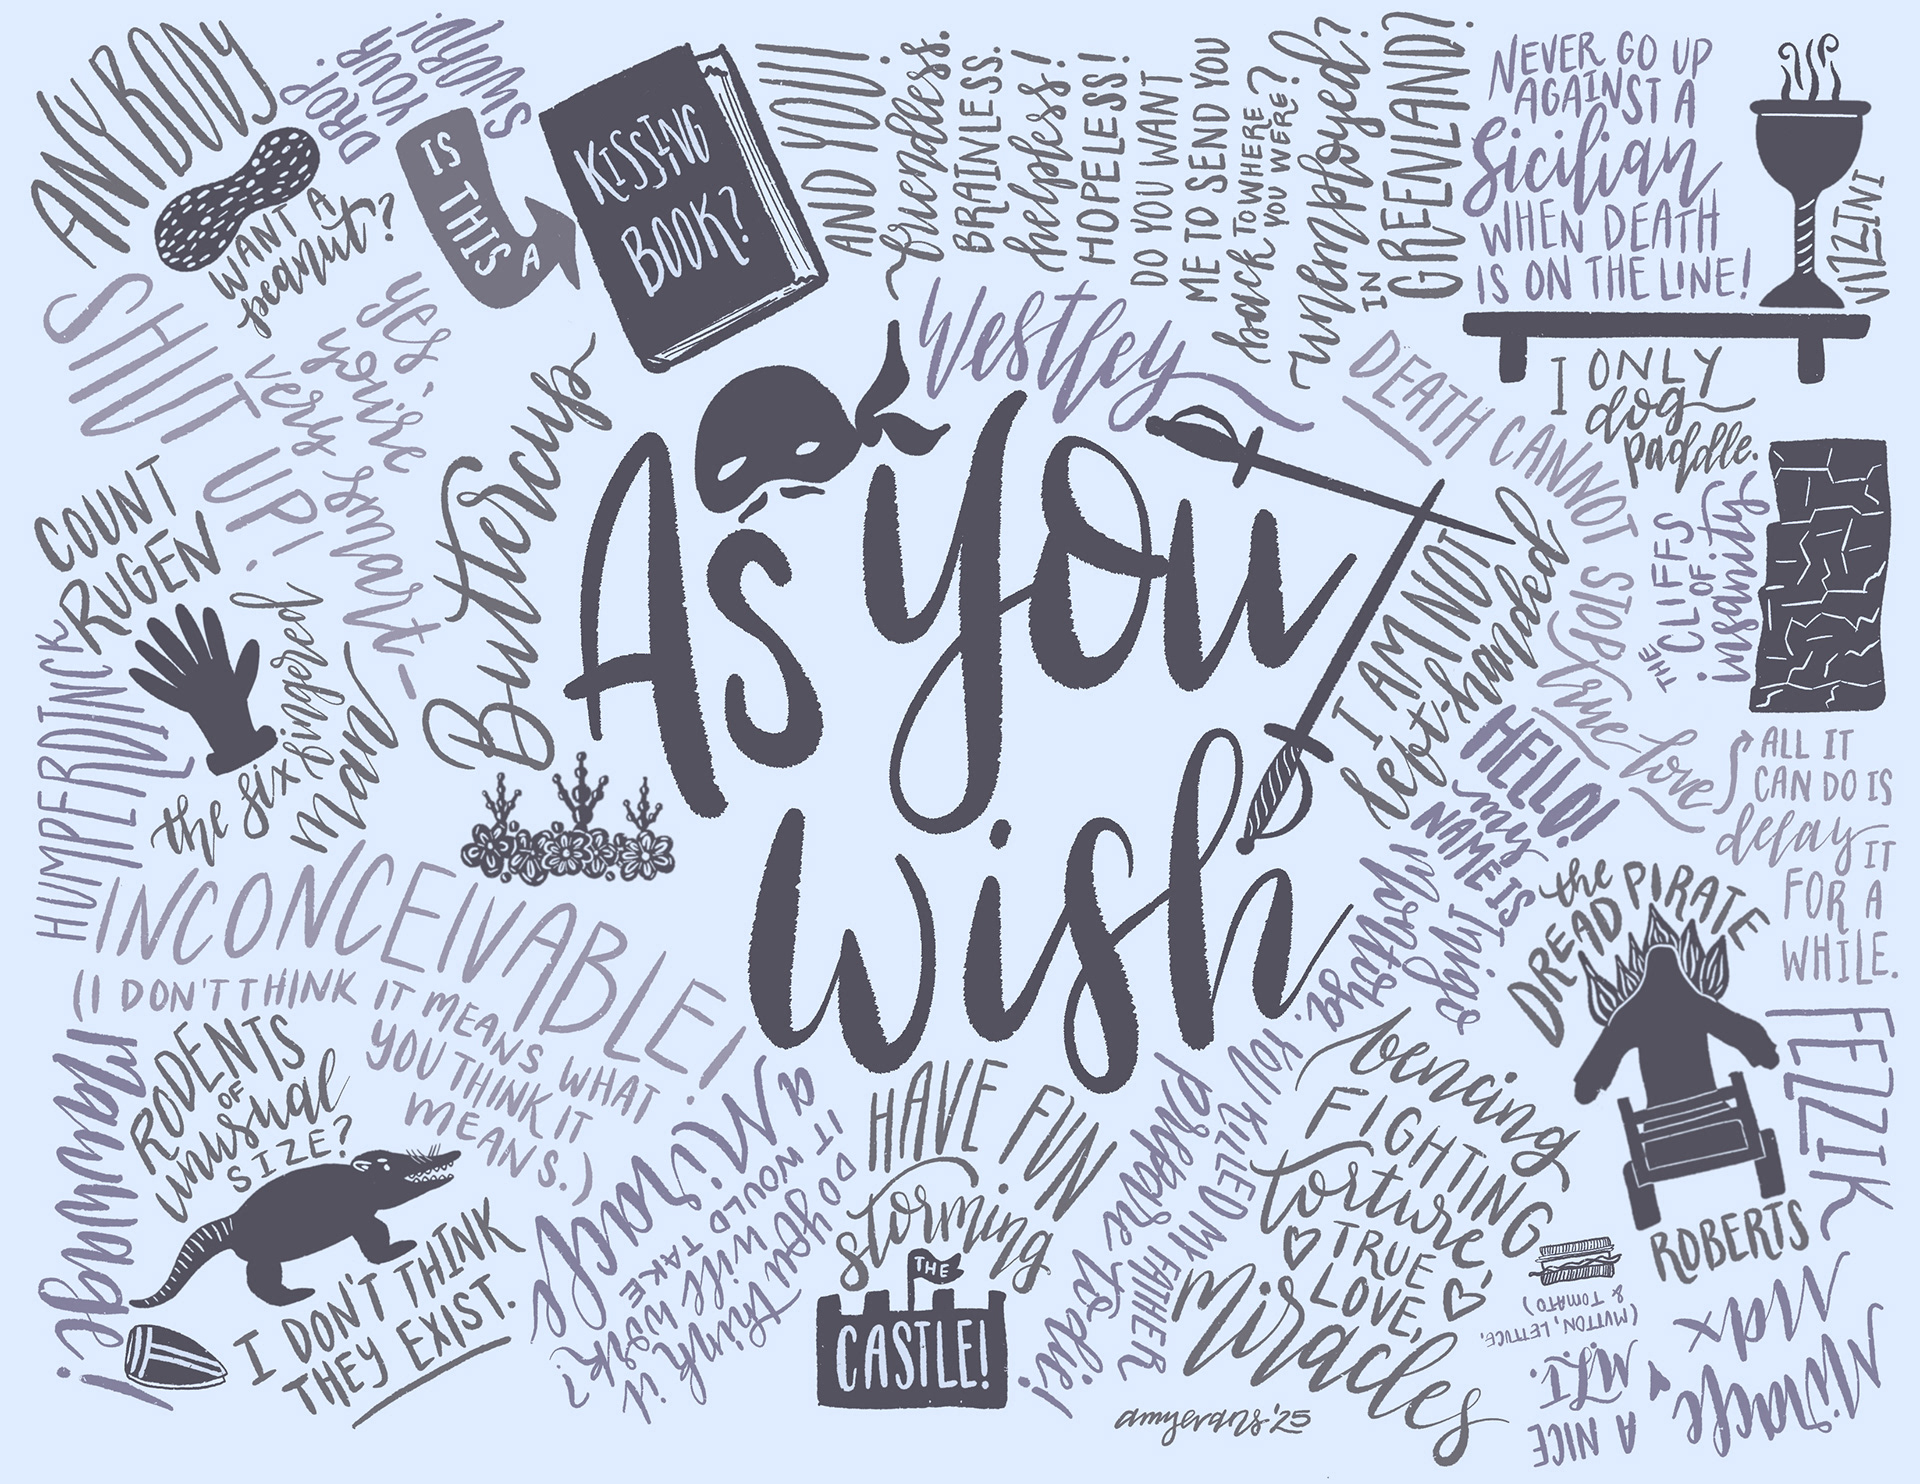 ANYBODY
WANT A
peanut?
DROP!
YOUR
SWORD!
IS THIS A
KISSING
BOOK?
AND YOU!
friendless.
BRAINLESS.
helpless!
HOPELESS!
DO YOU WANT
ME TO SEND YOU
back TO WHERE
YOU WERE?
unemployed?
IN
GREENLAND?
NEVER GO UP
AGAINST A
Sicilian
WHEN DEATH
IS ON THE LINE!
VIZZINI
SHUT UP!
yes,
you're
very smart-
Buttercup
Westley
As you
wish
DEATH CANNOT STOP
true love
ALL IT
CAN DO IS
delay IT
FOR A
WHILE.
I ONLY
dog
paddle.
THE
CLIFFS
OF
insanity
I AM NOT
left-handed
COUNT
RUGEN
the six fingered
man
HUMPERDINCK
INCONCEIVABLE!
(I DON'T THINK IT MEANS WHAT
YOU THINK IT
MEANS.)
HELLO!
my
NAME IS
Inigo
Montoya.
YOU KILLED MY FATHER
prepare to die!
the PIRATE
DREAD
ROBERTS
FEZZIK
mawwage!
RODENTS
OF
unusual
SIZE?
I DON'T THINK
THEY EXIST.
DO you think it
will work?
IT WOULD TAKE
a Miracle
HAVE FUN
storming
THE
CASTLE!
fencing
FIGHTING
torture,
TRUE
LOVE,
Miracles
Miracle
Max
A NICE
MLT.
(MUTTON, LETTUCE,
& TOMATO)
amyevans '25